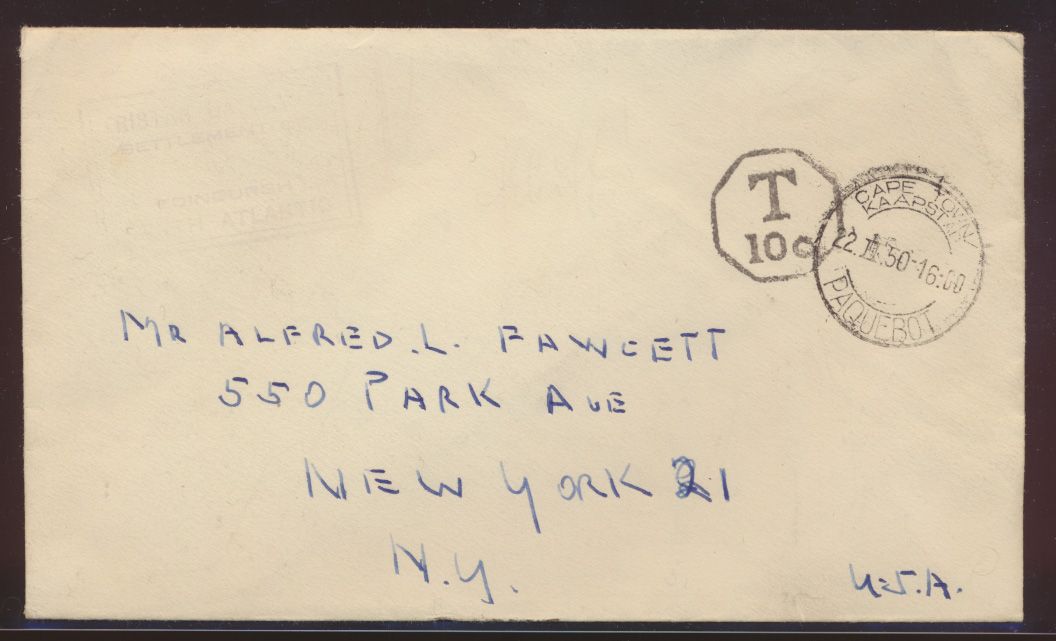 SETTLEMENT
EDINBURGH
ATLANTIC
T
10c
CAPE TOWN
KAAPSTAD
22.III.50-16:00
PAQUEBOT
MR ALFRED.L. FAWCETT
550 PARK AVE
NEW YORK 21
N.Y.
U.S.A.